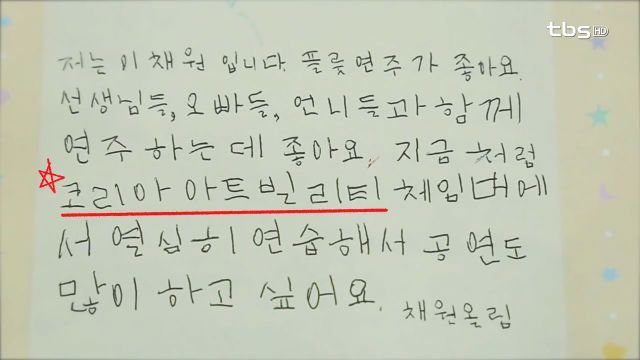 tbs HD
저는 이채원 입니다. 플룻연주가 좋아요.
선생님들, 오빠들, 언니들과 함께
연주 하는데 좋아요. 지금 처럼
코리아 아트빌리티 체임버에
서 열심히 연습해서 공연도
많이 하고 싶어요.
채원올림